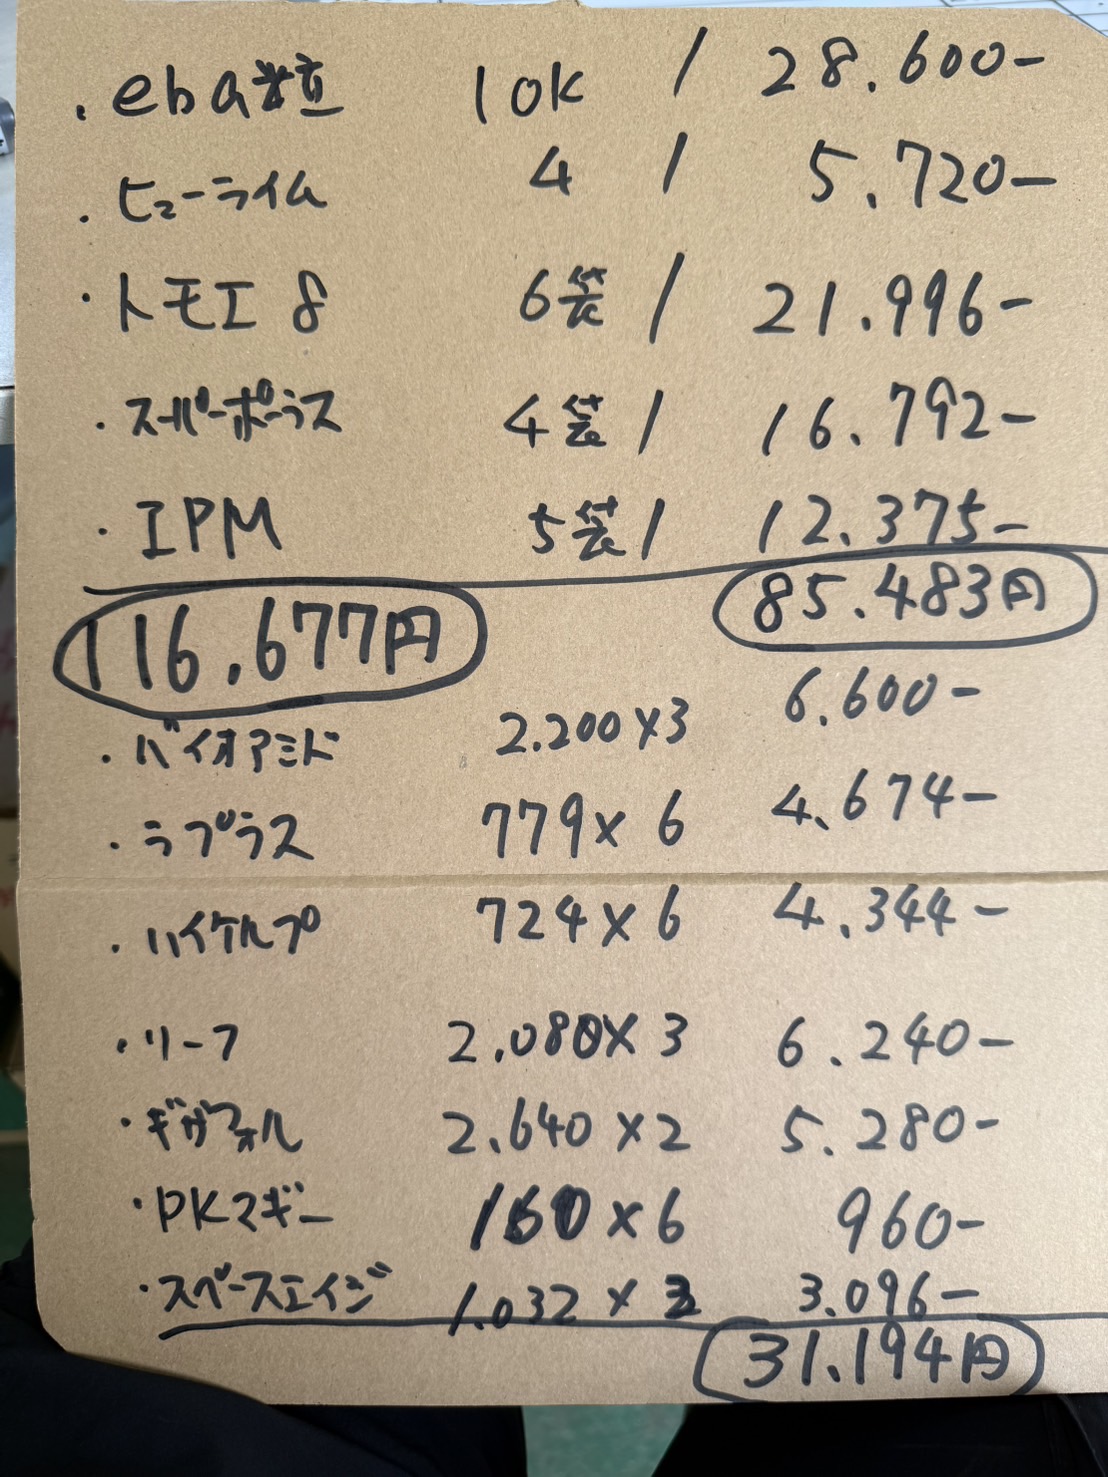 ・eba粒 10K / 28.600-
・ヒューライム 4 / 5.720-
・トモエ8 6袋 / 21.996-
・スーパーポーラス 4袋 / 16.792-
・IPM 5袋 / 12.375-
85.483円
116.677円
・バイオアミド 2.200×3 6.600-
・ラプラス 779×6 4.674-
・ハイケルプ 724×6 4.344-
・リーフ 2.080×3 6.240-
・ギガフォル 2.640×2 5.280-
・PKマギー 160×6 960-
・スペースエイジ 1.032×3 3.096-
31.194円